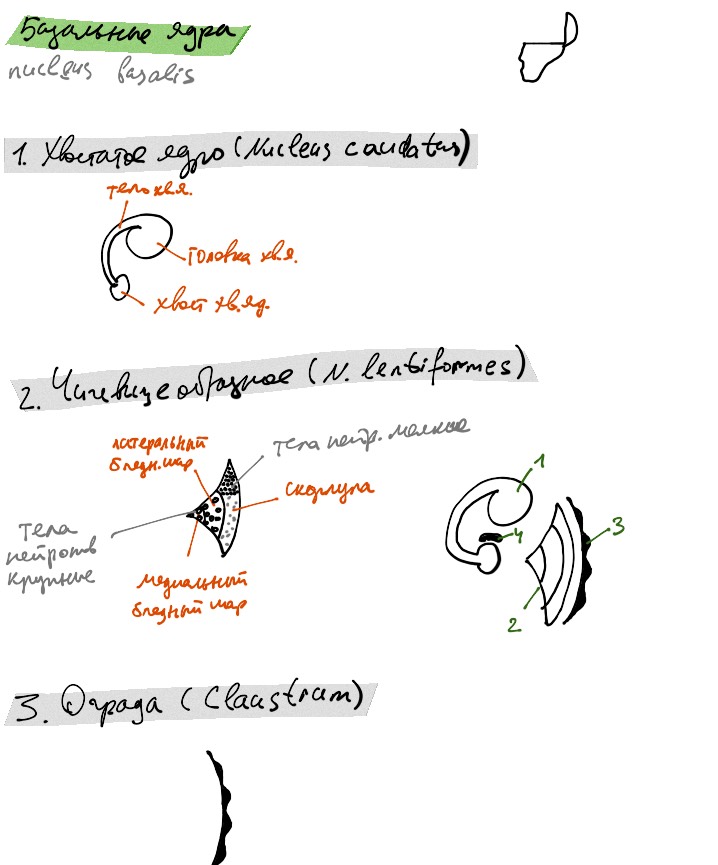 Базальные ядра
nucleus basalis
1. Хвостатое ядро (Nucleus caudatus)
тело хв.я.
головка хв.я.
хвост хв.яд.
2. Чичевицеобразное (N. lentiformes)
латеральный
бледн. шар
тела нейр. мелкие
скорлупа
тела
нейронов
крупные
медиальный
бледный шар
1
4
3
2
3. Ограда (Claustrum)